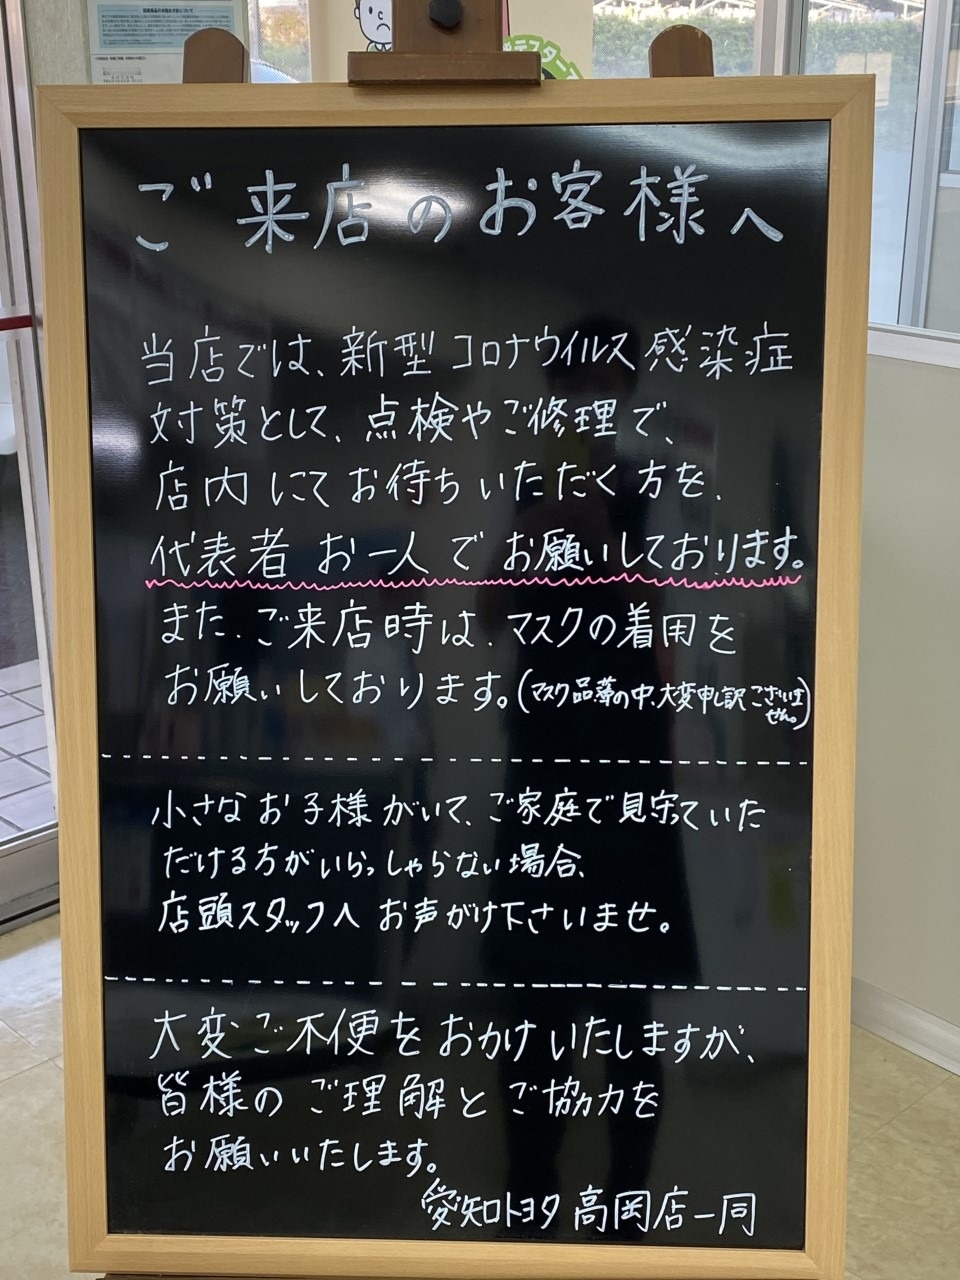 ご来店のお客様へ
当店では、新型コロナウイルス感染症
対策として、点検やご修理で、
店内にてお待ちいただく方を、
代表者お一人でお願いしております。
また、ご来店時は、マスクの着用を
お願いしております。(マスク品薄の中、大変申し訳ございま
せん。)
小さなお子様がいて、ご家庭で見守っていた
だける方がいらっしゃらない場合、
店頭スタッフへお声がけ下さいませ。
大変ご不便をおかけいたしますが、
皆様のご理解とご協力を
お願いいたします。
愛知トヨタ 高岡店一同